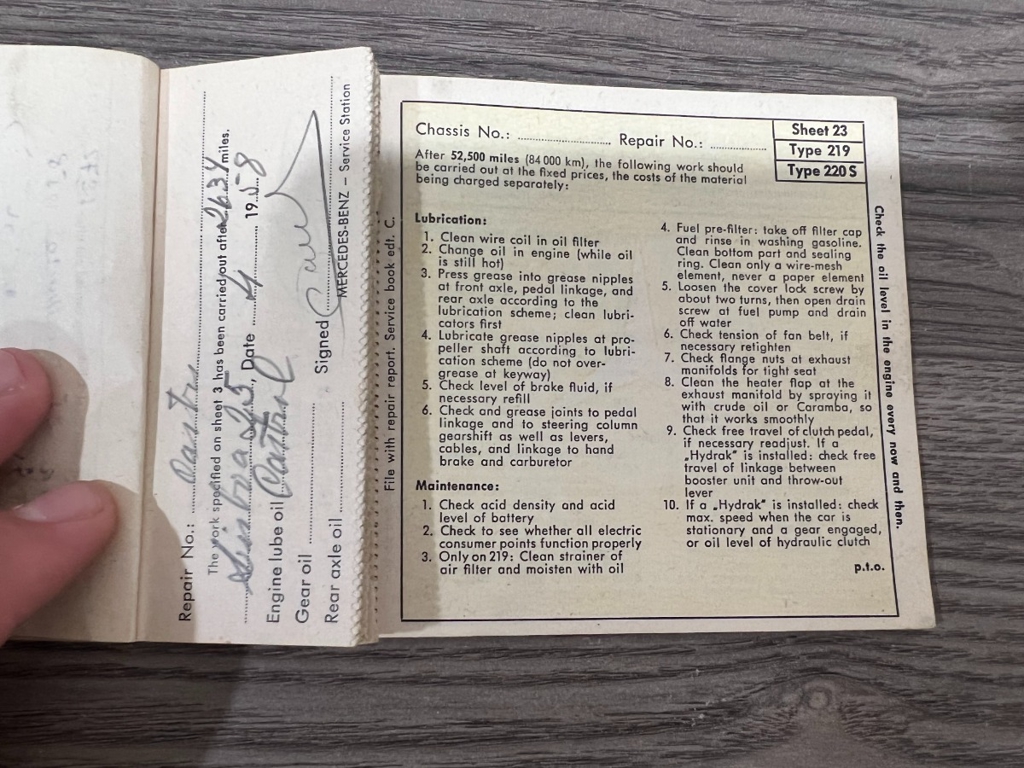 Repair No.:
The work specified on sheet 3 has been carried out after miles.
, Date 4 1958
Engine lube oil Castrol
Gear oil
Signed
Rear axle oil
MERCEDES-BENZ – Service Station
File with repair report. Service book edt. C.
Chassis No.: Repair No.:
Sheet 23
Type 219
Type 220 S
After 52,500 miles (84 000 km), the following work should
be carried out at the fixed prices, the costs of the material
being charged separately:
Lubrication:
1. Clean wire coil in oil filter
2. Change oil in engine (while oil
is still hot)
3. Press grease into grease nipples
at front axle, pedal linkage, and
rear axle according to the
lubrication scheme; clean lubri-
cators first
4. Lubricate grease nipples at pro-
peller shaft according to lubri-
cation scheme (do not over-
grease at keyway)
5. Check level of brake fluid, if
necessary refill
6. Check and grease joints to pedal
linkage and to steering column
gearshift as well as levers,
cables, and linkage to hand
brake and carburetor
Maintenance:
1. Check acid density and acid
level of battery
2. Check to see whether all electric
consumer points function properly
3. Only on 219: Clean strainer of
air filter and moisten with oil
4. Fuel pre-filter: take off filter cap
and rinse in washing gasoline.
Clean bottom part and sealing
ring. Clean only a wire-mesh
element, never a paper element
5. Loosen the cover lock screw by
about two turns, then open drain
screw at fuel pump and drain
off water
6. Check tension of fan belt, if
necessary retighten
7. Check flange nuts at exhaust
manifolds for tight seat
8. Clean the heater flap at the
exhaust manifold by spraying it
with crude oil or Caramba, so
that it works smoothly
9. Check free travel of clutch pedal,
if necessary readjust. If a
„Hydrak" is installed: check free
travel of linkage between
booster unit and throw-out
lever
10. If a „Hydrak" is installed: check
max. speed when the car is
stationary and a gear engaged,
or oil level of hydraulic clutch
p.t.o.
Check the oil level in the engine every now and then.